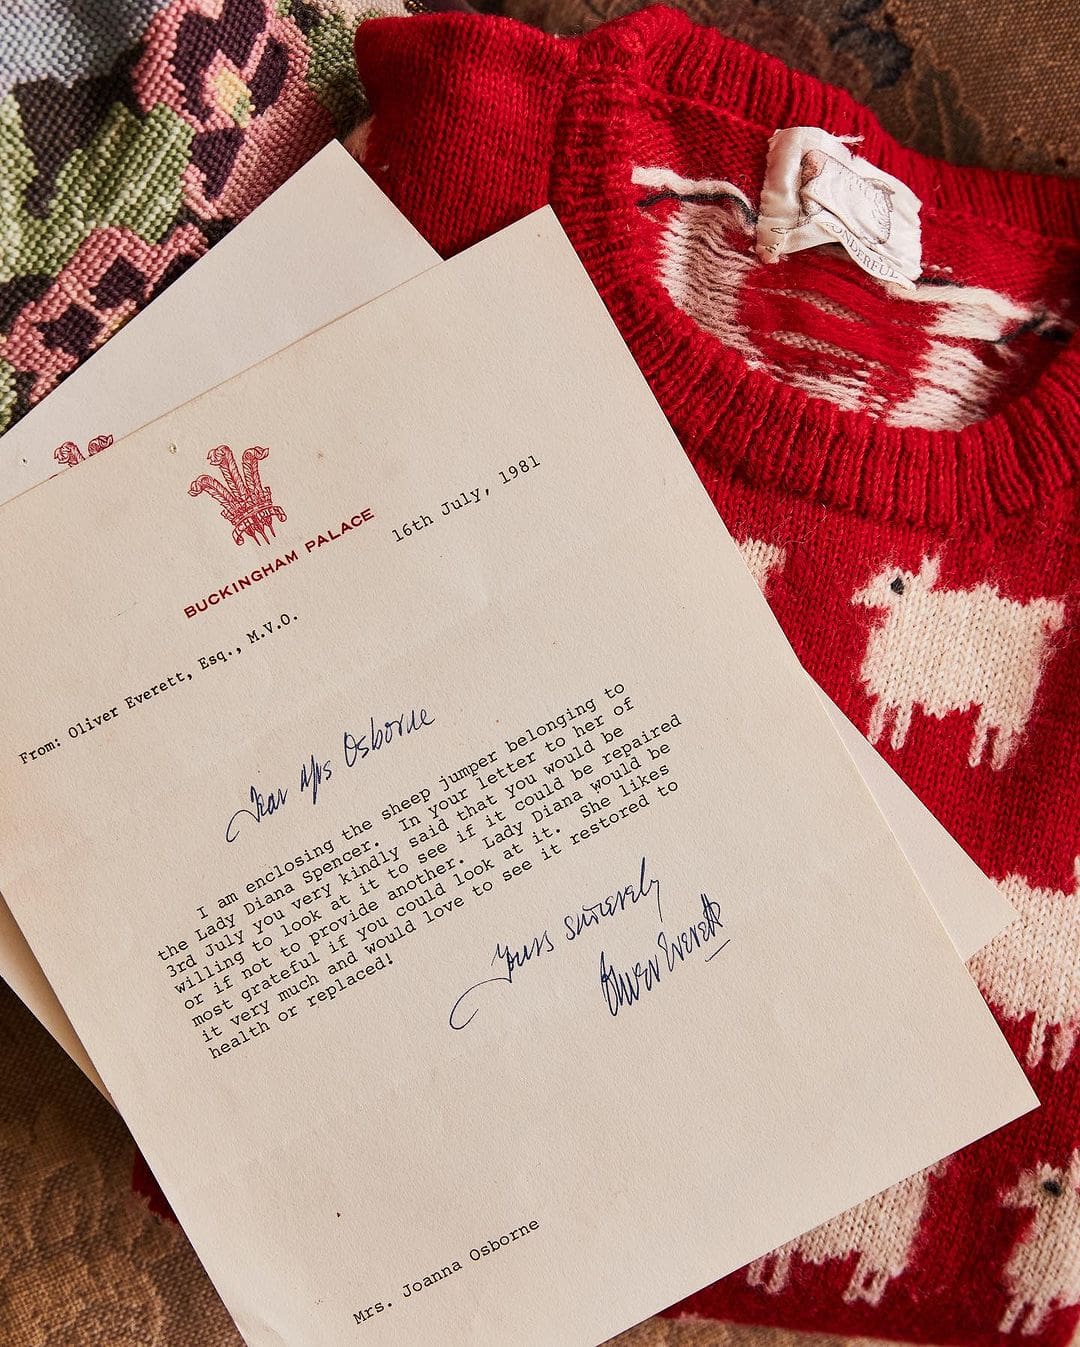 BUCKINGHAM PALACE
16th July, 1981
From: Oliver Everett, Esq., M.V.O.
Dear Mrs Osborne
I am enclosing the sheep jumper belonging to
the Lady Diana Spencer. In your letter to her of
3rd July you very kindly said that you would be
willing to look at it to see if it could be repaired
or if not to provide another. Lady Diana would be
most grateful if you could look at it. She likes
it very much and would love to see it restored to
health or replaced!
Yours sincerely
Oliver Everett
Mrs. Joanna Osborne
WONDERFUL